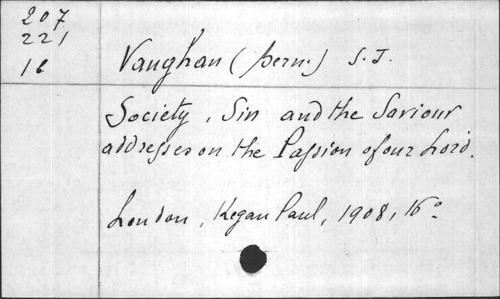 207
221
16
Vaughan (Bern.) S.J.
Society, Sin and the Saviour
addresses on the Passion of our Lord.
London, Kegan Paul, 1908, 16°